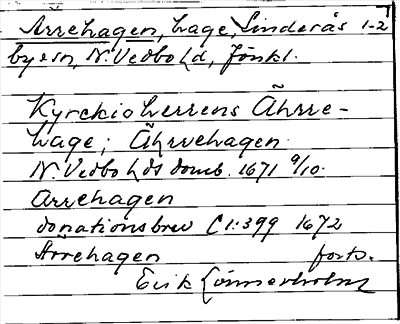 Ärrehagen, hage, Linderås 1-2
by o sn, N. Vedbo hd, Jönkl.
Kyrckioherrens Ährre-
hage; Ährrehagen
N. Vedbo hds domb. 1671 9/10.
Arrehagen
donationsbrev C 1:399 1672
Arrehagen forts.
Erik Lönnerholm